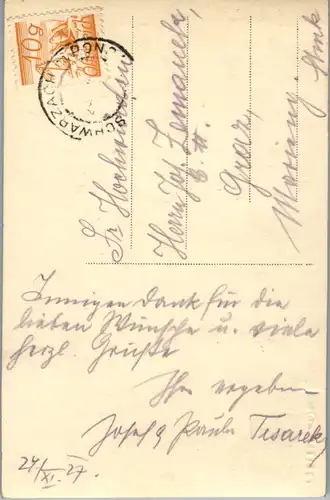 10g
SCHWARZACH
Sr. Hochwürden
Herrn Jos. Zemanek
Graz,
Stmk
Innigen Dank für die
lieben Wünsche u. viele
herzl. Grüße
Ihr ergeben
Josef & Paula Tesarek
24/XI. 27.